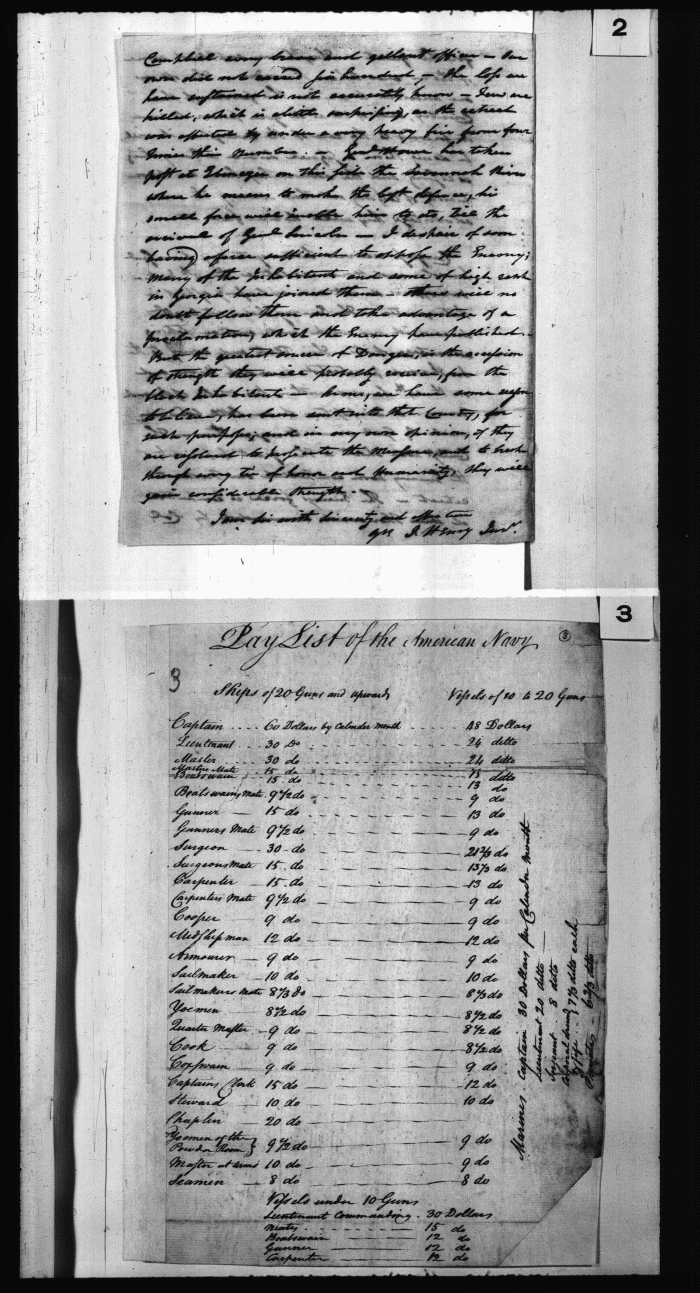 2
Campbel a very brave and gallant officer — Our
own did not exceed six hundred, — the loss we
have sustained is not accurately know — few are
killed, which is a little surprising, as the retreat
was effected by under a very heavy fire from four
times their number. — Genl Howe has taken
post at Ebenezer on this side the Savannah River
where he means to make the best defence, his
small force will enable him to do, till the
arrival of Genl Lincoln — I despair of soon
having a force sufficient to oppose the Enemy;
many of the Inhabitants and some of high rank
in Georgia have joined them — others will no
doubt follow them and take advantage of a
proclamation, which the Enemy have published.
But the greatest source of Danger, is the accession
of strength they will probably receive, from the
black Inhabitants — Arms, we have some reason
to believe, has been sent into that Country, for
such purpose; and in my own opinion, if they
are resolved to prosecute the Measure, and to break
through every tie of honor and Humanity, they will
gain considerable strength.
I am sir with sincerity
J. Henry Junr.
3
Pay List of the American Navy
3
3
Ships of 20 Guns and upwards Vessels of 10 to 20 Guns
Captain 60 Dollars by Calender month 48 Dollars
Lieutenant 30 Do 24 ditto
Master 30 do 24 ditto
Masters Mate 15 do 15 ditto
Boatswain 15 do 13 do
Boatswains Mate 9 1/2 do 9 do
Gunner 15 do 13 do
Gunners Mate 9 1/2 do 9 do
Surgeon 30 do 21 2/3 do
Surgeons Mate 15 do 13 1/3 do
Carpenter 15 do 13 do
Carpenters Mate 9 1/2 do 9 do
Cooper 9 do 9 do
Midshipman 12 do 12 do
Armourer 9 do 9 do
Sailmaker 10 do 10 do
Sailmakers Mate 8 1/3 do 8 1/3 do
Yoemen 8 1/2 do 8 1/2 do
Quarter Master 9 do 8 1/2 do
Cook 9 do 8 1/2 do
Coxswain 9 do 9 do
Captains Clerk 15 do 12 do
Steward 10 do 10 do
Chaplin 20 do
Yoemen of the
Powder Room } 9 1/2 do 9 do
Master at Arms 10 do 9 do
Seamen 8 do 8 do
Vessels under 10 Guns
Lieutenant Commanding 30 Dollars
Mates 15 do
Boatswain 12 do
Gunner 12 do
Carpenter 12 do
Marines Captain 30 Dollars per Calender Month
Lieutenant 20 ditto
Serjeant 8 ditto
Corporal drum
& fife } 7 1/3 ditto each
6 2/3 ditto